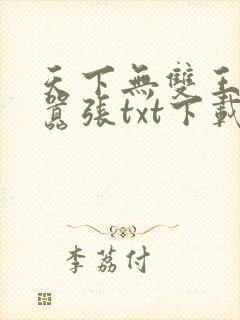 天下無雙王
囂張txt下載
李荔付